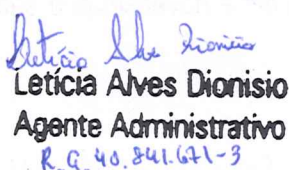 Letícia Alves Dionisio
Letícia Alves Dionisio
Agente Administrativo
R.G 40.841.671-3